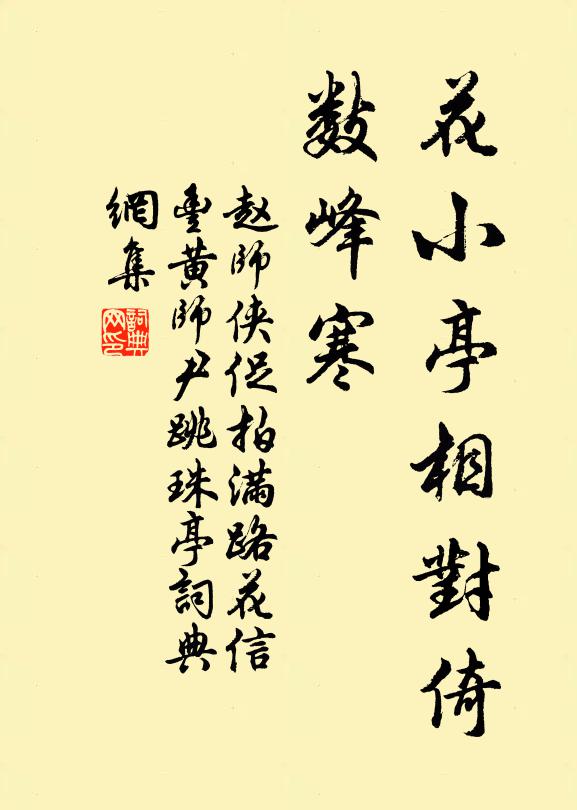 花小亭相對倚
數峰寒
赵師侠促拍滿路花信
豊黄師尹跳珠亭詞典
網集
詞典网印